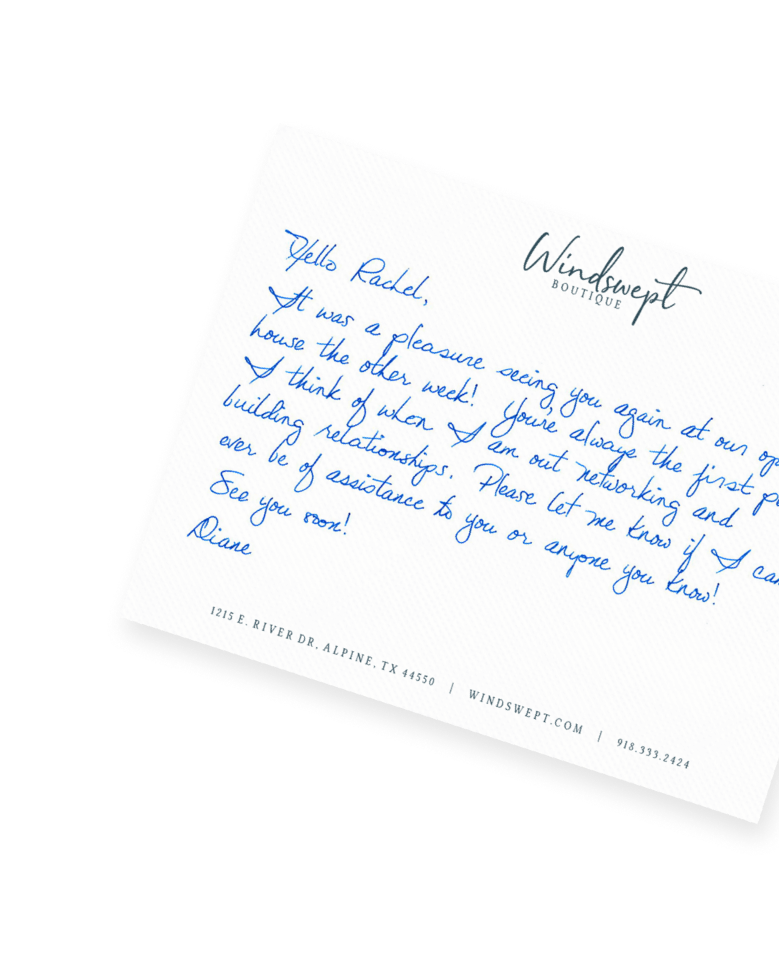 Windswept
BOUTIQUE
Hello Rachel,
It was a pleasure seeing you again at our op
house the other week! You're always the first p
I think of when I am out networking and
building relationships. Please let me know if I can
ever be of assistance to you or anyone you know!
See you soon!
Diane
1215 E. RIVER DR, ALPINE, TX 44550 | WINDSWEPT.COM | 918.333.2424